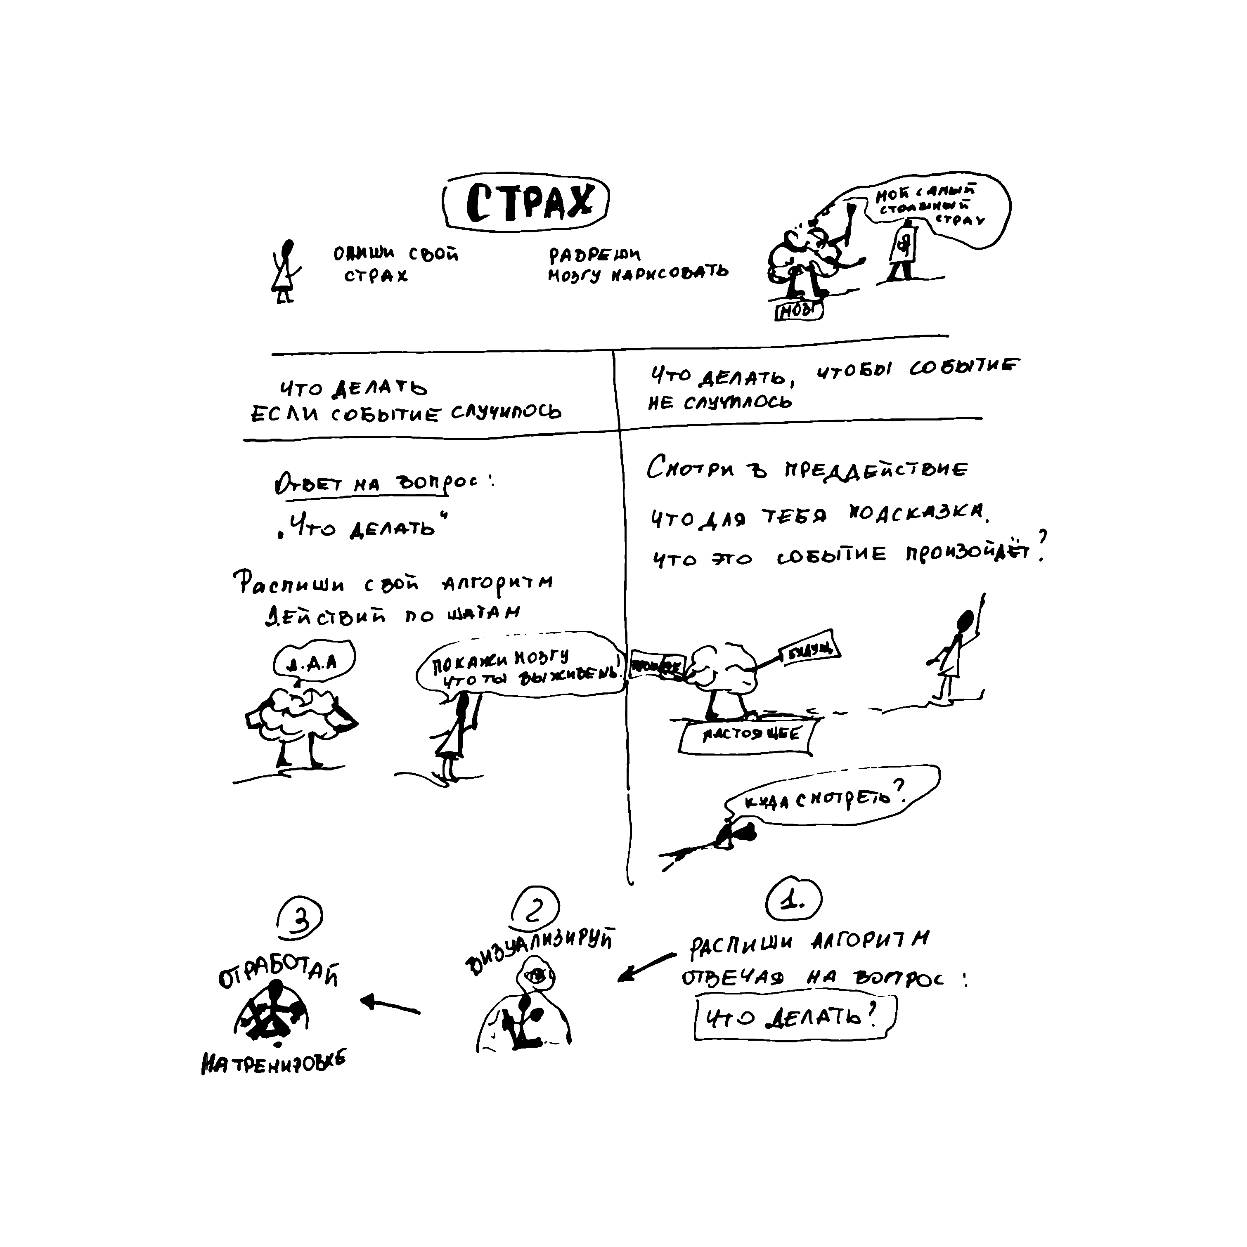 СТРАХ
ОПИШИ СВОЙ
СТРАХ
РАЗРЕШИ
МОЗГУ НАРИСОВАТЬ
МОЙ САМЫЙ
СТРАШНЫЙ
СТРАХ
МОЗГ
ЧТО ДЕЛАТЬ
ЕСЛИ СОБЫТИЕ СЛУЧИЛОСЬ
ЧТО ДЕЛАТЬ, ЧТОБЫ СОБЫТИЕ
НЕ СЛУЧИЛОСЬ
ОТВЕТ НА ВОПРОС:
„ЧТО ДЕЛАТЬ“
РАСПИШИ СВОЙ АЛГОРИТМ
ДЕЙСТВИЙ ПО ШАГАМ
Л.Д.А
ПОКАЖИ МОЗГУ
ЧТО ТЫ ВЫЖИВЕШЬ!
СМОТРИ В ПРЕДДЕЙСТВИЕ
ЧТО ДЛЯ ТЕБЯ ПОДСКАЗКА,
ЧТО ЭТО СОБЫТИЕ ПРОИЗОЙДЁТ?
БУДУЩ
НАСТОЯЩЕЕ
КУДА СМОТРЕТЬ?
1.
РАСПИШИ АЛГОРИТМ
ОТВЕЧАЯ НА ВОПРОС:
ЧТО ДЕЛАТЬ?
2
ВИЗУАЛИЗИРУЙ
3
ОТРАБОТАЙ
НА ТРЕНИРОВКЕ